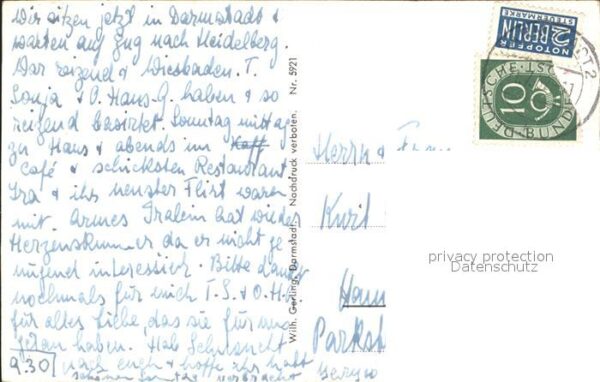 Wir sitzen jetzt in Darmstadt &
warten auf Zug nach Heidelberg.
War reizend & Wiesbaden. T.
Sonja & O. Hans-G. haben & so
reizend bewirtet. Sonntag mittag
zu Haus & abends im
Café & schicksten Restaurant
Ira & ihr neuster Flirt waren
mit. Armes Iralein hat wieder
Herzenskummer da er nicht ge
nügend interessiert. Bitte dankt
nochmals für mich T.S. & O.H.
für alles Liebe, das sie für uns
getan haben. Hab Sehnsucht
9.30 nach euch & hoffe ihr habt
schönen Sonntag verbracht
Wilh. Gerling, Darmstadt. Nachdruck verboten. Nr. 5921
NOTOPFER
2 BERLIN
STEUERMARKE
DEUTSCHE BUNDESPOST
10
Herrn &
Kurt
Ham
Parkst
privacy protection
Datenschutz